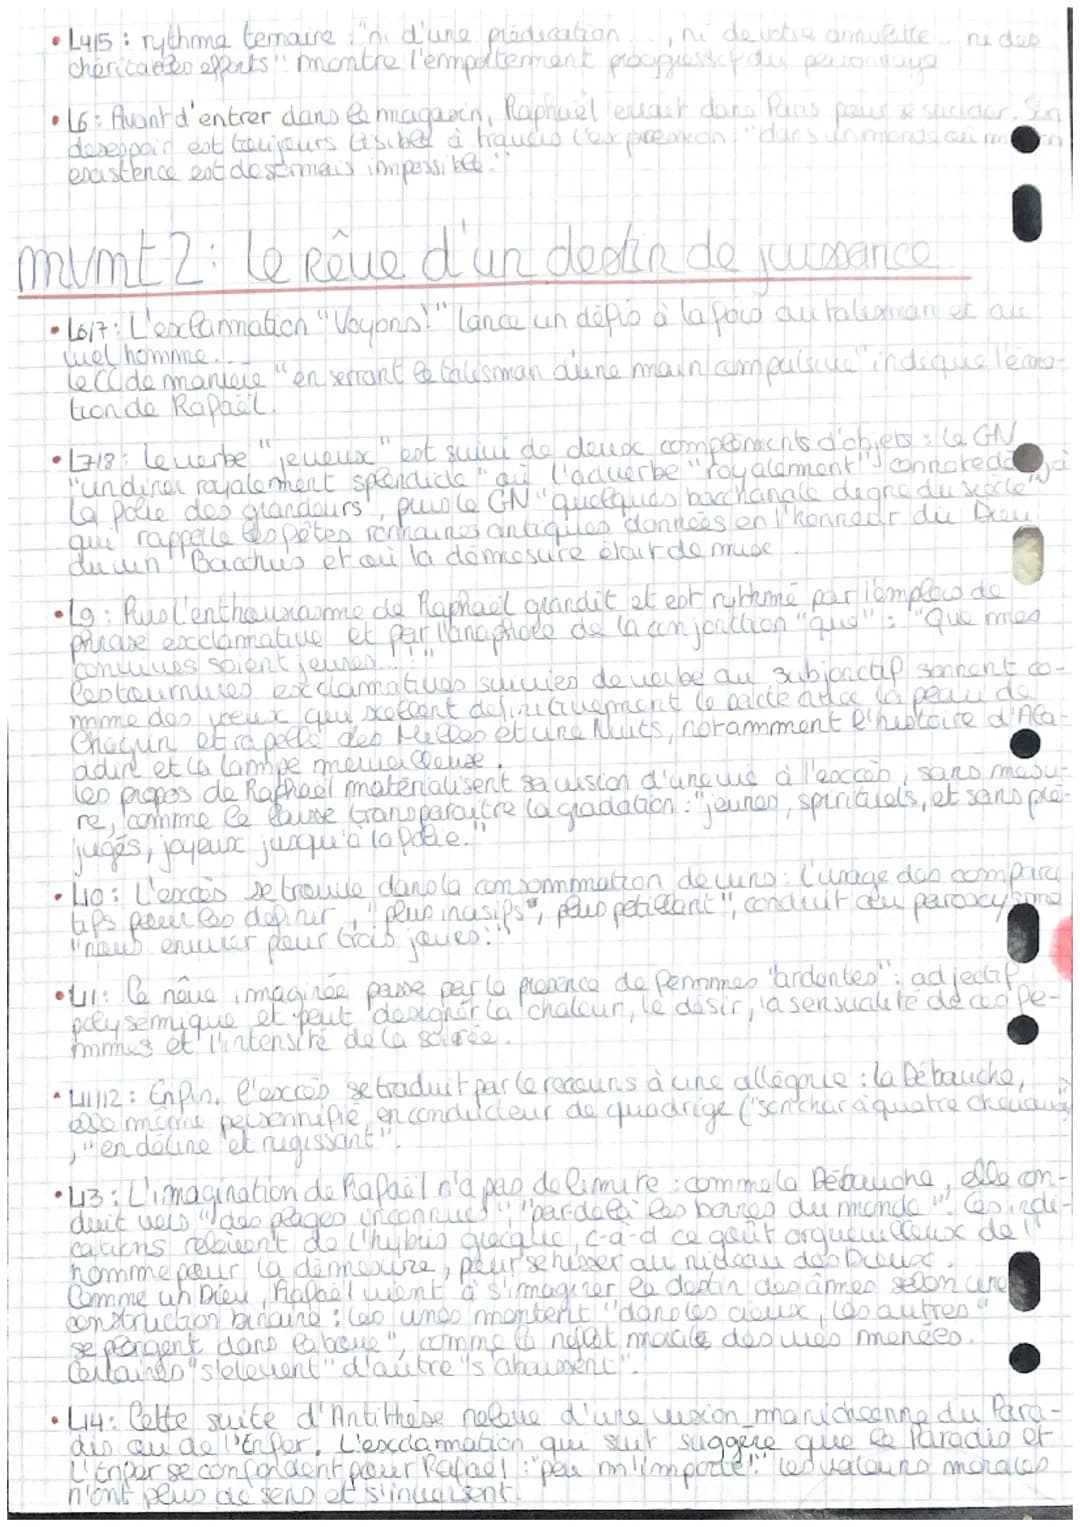 • L4/5 : rythme ternaire : "ni d'une prédication..., ni de votre amulette... ni des
charitables efforts" montre l'emportement progressif du personnage
• L6 : Avant d'entrer dans le magasin, Raphaël errait dans Paris pour se suicider. Son
desespoir est toujours lisible à travers l'expression : "dans un monde où mon
existence est desormais impossible."
mvmt 2 : Le Rêve d'un destin de jouissance
• L6/7 : L'exclamation "Voyons!" lance un défis à la fois au talisman et au
vieil homme...
le CC de manière "en serrant le talisman d'une main compulsive" indique l'émo-
tion de Rapaël.
• L7/8 : Le verbe "jeveux" est suivi de deux compléments d'objets : le GN
"un diner royalement splendide" où l'adverbe "royalement" connote
la folie des grandeurs, puis le GN "quelques bacchanale digne du siècle"
qui rappelle les fêtes romaines antiques données en l'honneur du Dieu
du vin Bacchus et où la démesure était de mise
• L9 : Puis l'enthousiasme de Raphaël grandit et est rythmé par l'emploie de
phrase exclamative et par l'anaphore de la conjonction "que" : "Que mes
convives soient jeunes...!"
Les tournures exclamatives suivies de verbe au subjonctif sonnent co-
mme des voeux qui scellent definitivement le pacte avec la peau de
Chagrin et rapelle des Milles et une Nuits, notammment l'histoire d'Ala-
adin et la lampe merveilleuse.
Les propos de Raphaël matérialisent sa vision d'une vie à l'excès, sans mesu-
re, comme le laisse transparaitre la gradation : "jeunes, spirituels, et sans pré-
jugés, joyeux jusqu'à la folie."
• L10 : L'excès se trouve dans la consommation de vins : L'usage des compara
tifs pour les definir, "plus incisifs", plus pétillant", conduit au paroxysme
"nous enivrer pour trois jours."
• L11 : Le rêve imaginée passe par la présence de femmmes "ardentes" : adjectif
polysemique et peut designer la chaleur, le désir, la sensualité de ces fe-
mmes et l'intensité de la soirée.
• L11/12 : Enfin, l'excès se traduit par le recours à une allégorie : la Débauche,
elle même personnifié, en conducteur de quadrige ("son char à quatre chevaux"
, "en délire et rugissant".
• L13 : L'imagination de Rafaël n'a pas de limite : comme la Débauche, elle con-
duit vers "des plages inconnues", "par-delà les bornes du monde". Ces indi-
cations relèvent de l'hybris grecque, c-à-d ce goût orgueilleux de l'
homme pour la démesure, pour se hisser au niveau des Dieux.
Comme un Dieu, Rafaël vient à s'imaginer le destin des âmes selon une
construction binaire : les unes montent "dans les cieux, les autres
se plongent dans la boue", comme le reflet morale des vies menées.
Certaines "s'elevent" d'autre "s'abaissent".
• L14 : Cette suite d'Antithèse relève d'une vision manichéenne du Para-
dis ou de l'Enfer. L'exclamation qui suit suggère que le Paradis et
L'Enfer se confondent pour Rafael : "peu m'importe!" les valeurs morales
n'ont plus de sens et s'inversent.